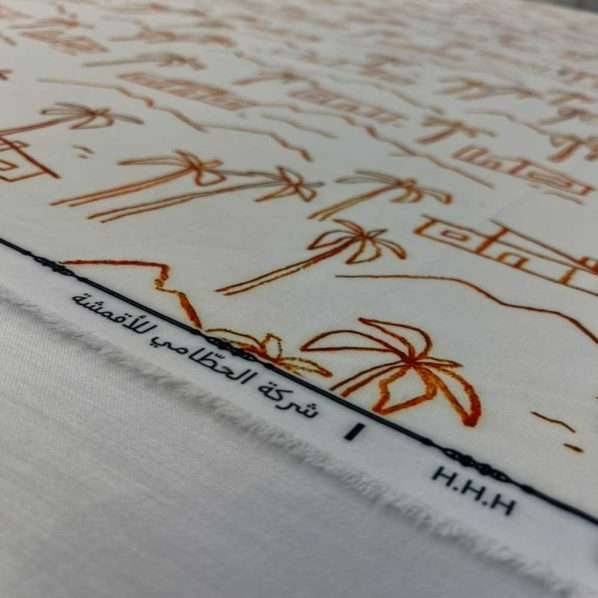 شركة الحطّامي للأقمشة
H.H.H